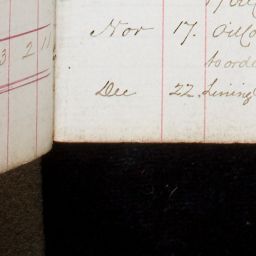 3 2 11
Nov 17. Oil Co
to orde
Dec 22. Lining